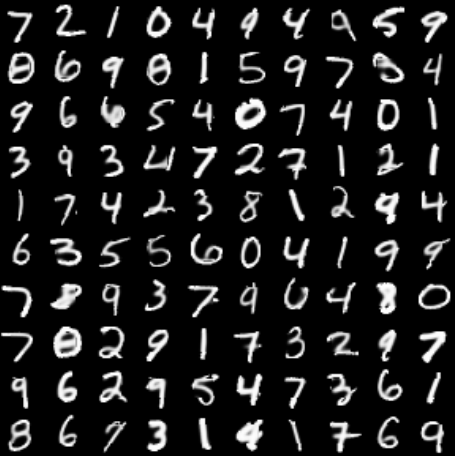 7 2 1 0 4 9 4 9 5 9
0 6 9 0 1 5 9 7 4
9 6 6 5 4 0 7 4 0 1
3 9 3 4 7 2 7 1 2 1
1 7 4 2 3 8 1 2 9 4
6 3 5 5 6 0 4 1 9 9
7 8 9 3 7 9 4 8 0
7 0 2 9 1 7 3 2 9 7
9 6 2 9 5 4 7 3 6 1
8 6 7 3 1 4 1 7 6 9